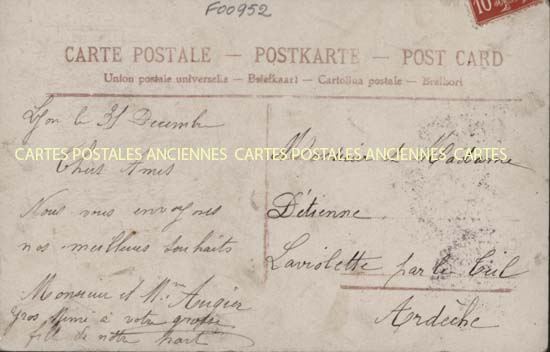 F00952
10
CARTE POSTALE — POSTKARTE — POST CARD
Union postale universelle — Briefkaart — Cartolina postale — Brefkort
Lyon le 31 Decembre
CARTES POSTALES ANCIENNES CARTES POSTALES ANCIENNES CARTES
Chers Amis
Nous vous envoyons
nos meilleurs souhaits
Monsieur et Mme Augier
Gros Mimi à votre grosse
fille de notre part
Monsieur & Madame
Détienne
Laviolette par le Teil
Ardèche